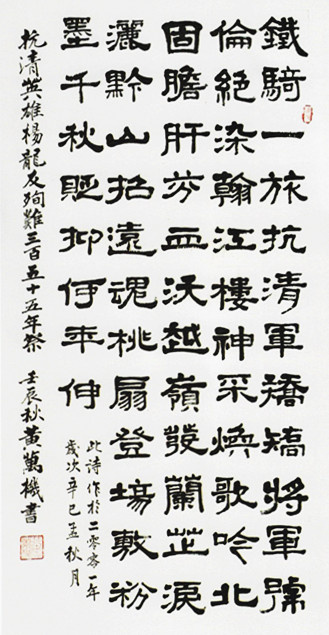 鐵騎一旅抗清軍矯矯將軍號
倫絕染翰江樓神采煥歌吟北
固膽肝芬血沃越嶺發蘭芷淚
灑黔山招遠魂桃扇登場敷粉
墨千秋貶抑何年伸
此詩作於二零零一年
歲次辛巳孟秋月
抗清英雄楊龍友殉難三百五十五年祭 壬辰秋黃萬機書